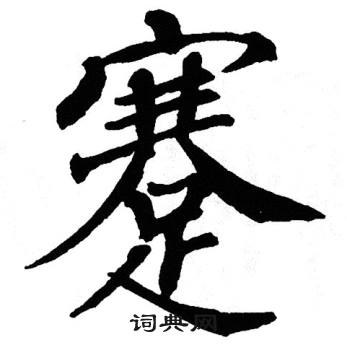 蹇
词典网